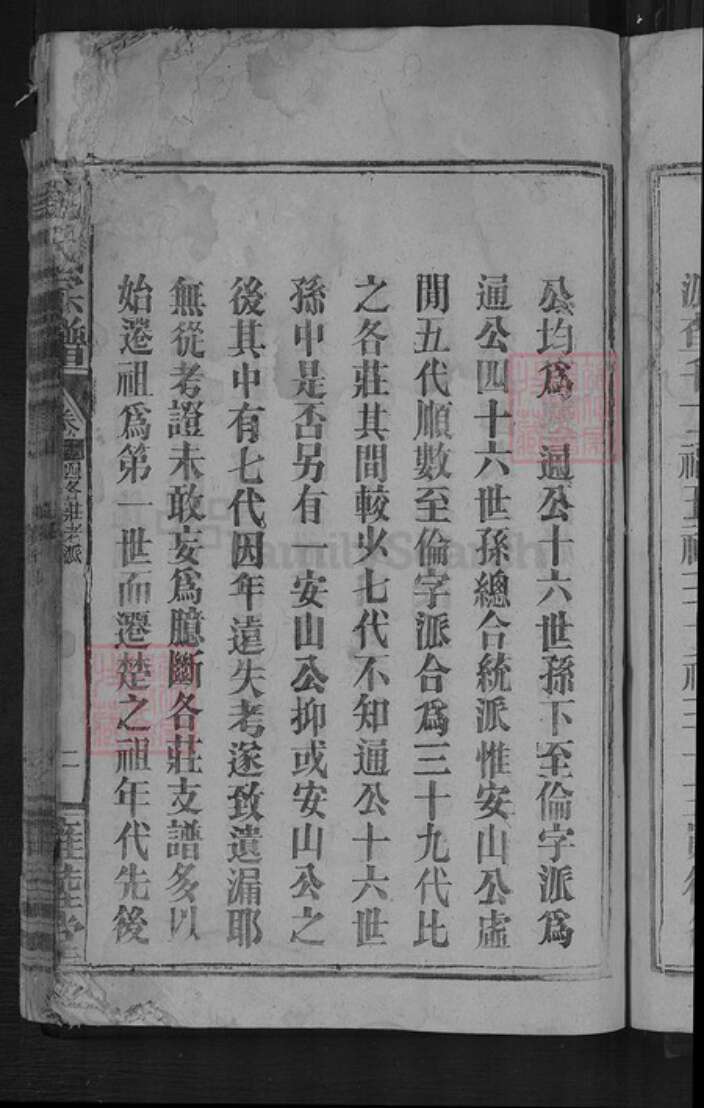 公均爲 通公十六世孫下至倫字派爲
通公四十六世孫總合統派惟安山公虛
間五代順數至倫字派合爲三十九代比
之各莊其間較少七代不知通公十六世
孫中是否另有一安山公抑或安山公之
後其中有七代因年遠失考遂致遺漏耶
無從考證未敢妄爲臆斷各莊支譜多以
始遷祖爲第一世而遷楚之祖年代先後
氏宗譜
卷
各莊考派
二
FamilySearch